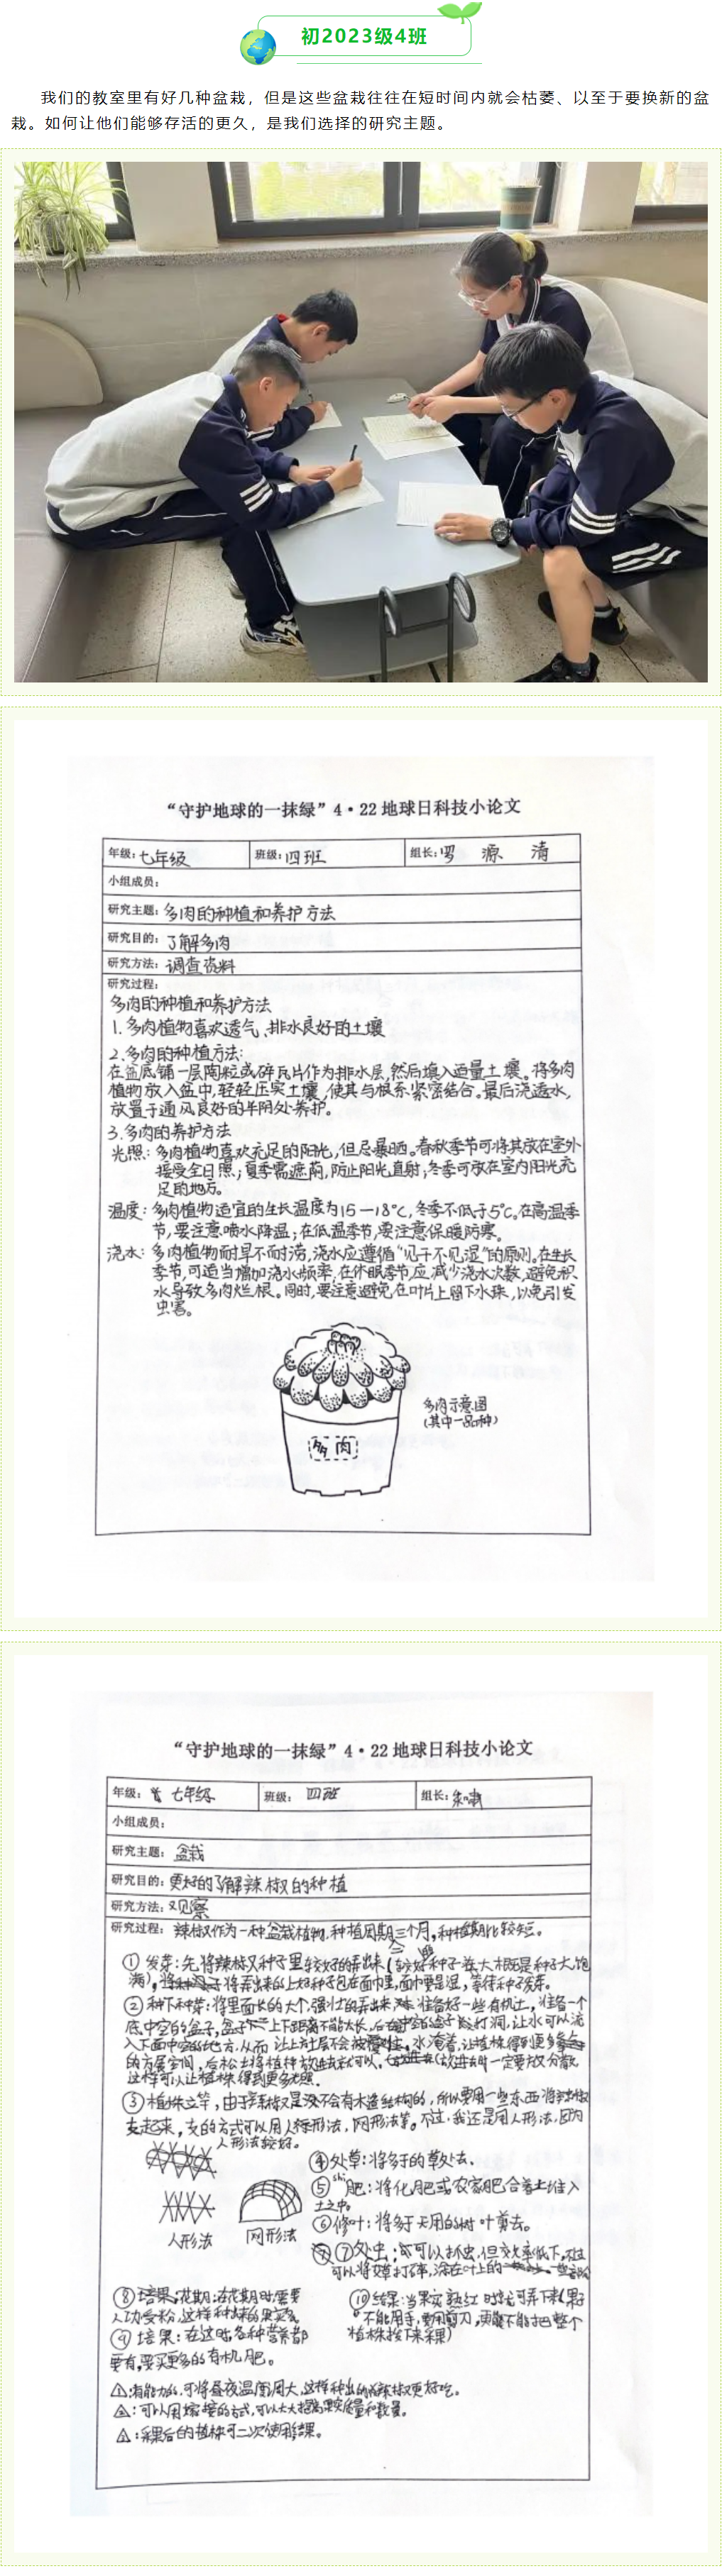 初2023级4班
我们的教室里有好几种盆栽，但是这些盆栽往往在短时间内就会枯萎、以至于要换新的盆
栽。如何让他们能够存活的更久，是我们选择的研究主题。
“守护地球的一抹绿”4·22地球日科技小论文
年级：七年级 班级：四班 组长：罗 源 清
小组成员：
研究主题：多肉的种植和养护方法
研究目的：了解多肉
研究方法：调查资料
研究过程：
多肉的种植和养护方法
1.多肉植物喜欢透气、排水良好的土壤
2.多肉的种植方法：
在盆底铺一层陶粒或碎瓦片作为排水层，然后填入适量土壤。将多肉
植物放入盆中，轻轻压实土壤，使其与根系紧密结合。最后浇透水，
放置于通风良好的半阴处养护。
3.多肉的养护方法
光照：多肉植物喜欢充足的阳光，但忌暴晒。春秋季节可将其放在室外
接受全日照；夏季需遮荫，防止阳光直射；冬季可放在室内阳光充
足的地方。
温度：多肉植物适宜的生长温度为15—18℃，冬季不低于5℃。在高温季
节，要注意喷水降温；在低温季节，要注意保暖防寒。
浇水：多肉植物耐旱不耐涝，浇水应遵循“见干不见湿”的原则。在生长
季节，可适当增加浇水频率，在休眠季节应减少浇水次数，避免积
水导致多肉烂根。同时，要注意避免在叶片上留下水珠，以免引发
虫害。
多肉示意图
（其中一品种）
多肉
“守护地球的一抹绿”4·22地球日科技小论文
年级：七年级 班级：四班 组长：朱
小组成员：
研究主题：盆栽
研究目的：更好的了解辣椒的种植
研究方法：观察
研究过程：辣椒作为一种盆栽植物，种植周期三个月，种植期比较短。
①发芽：先将辣椒种子里较好的弄出来（较好种子在大概是种子大，饱
满），将弄出来的上好种子包在面巾里，面巾要是湿，等待种子发芽。
②种下种芽：将里面长的大个，强壮的弄出来，准备好一些有机土，准备一个
底中空的盒子，盒子上下距离不能太长，后在中空的盒子戳打洞，让水可以流
入下面中空的地方，从而让上方土层不会被水淹着，让植株得到更多
的方展空间，后松土将植种放进去就可以，一定要放分散，
这样可以让植株得到更多光照。
③植株立竿，由于辣椒是没不会有木造结构的，所以要用一些东西将辣椒
支起来，支的方式可以用人形法，网形法等。不过，我还是用人形法，因为
人形法较好。
人形法 网形法
④处草：将多于的草处去。
⑤shi肥：将化肥或农家肥合着土堆入
土之中。
⑥修叶：将多于无用的树叶剪去。
⑦处虫：可以抓虫，但效率低下，
可以将艾草打碎，涂在叶上的
⑧花期：在花期时需要
人功受粉，这样种出来的果实多。
⑨培果：在这时各种营养都
要有，要买更多的有机肥。
⑩结果：当果实熟红时就可弄下来（果子
不能用手，要用剪刀，更不能把整个
植株按下来采）
⚠：有能力的，可将昼夜温度调大，这样种出的辣椒更好吃。
⚠：可以用嫁接的方式，可以大大提高果实质量和数量。
⚠：采果后的植株可二次使用结果。